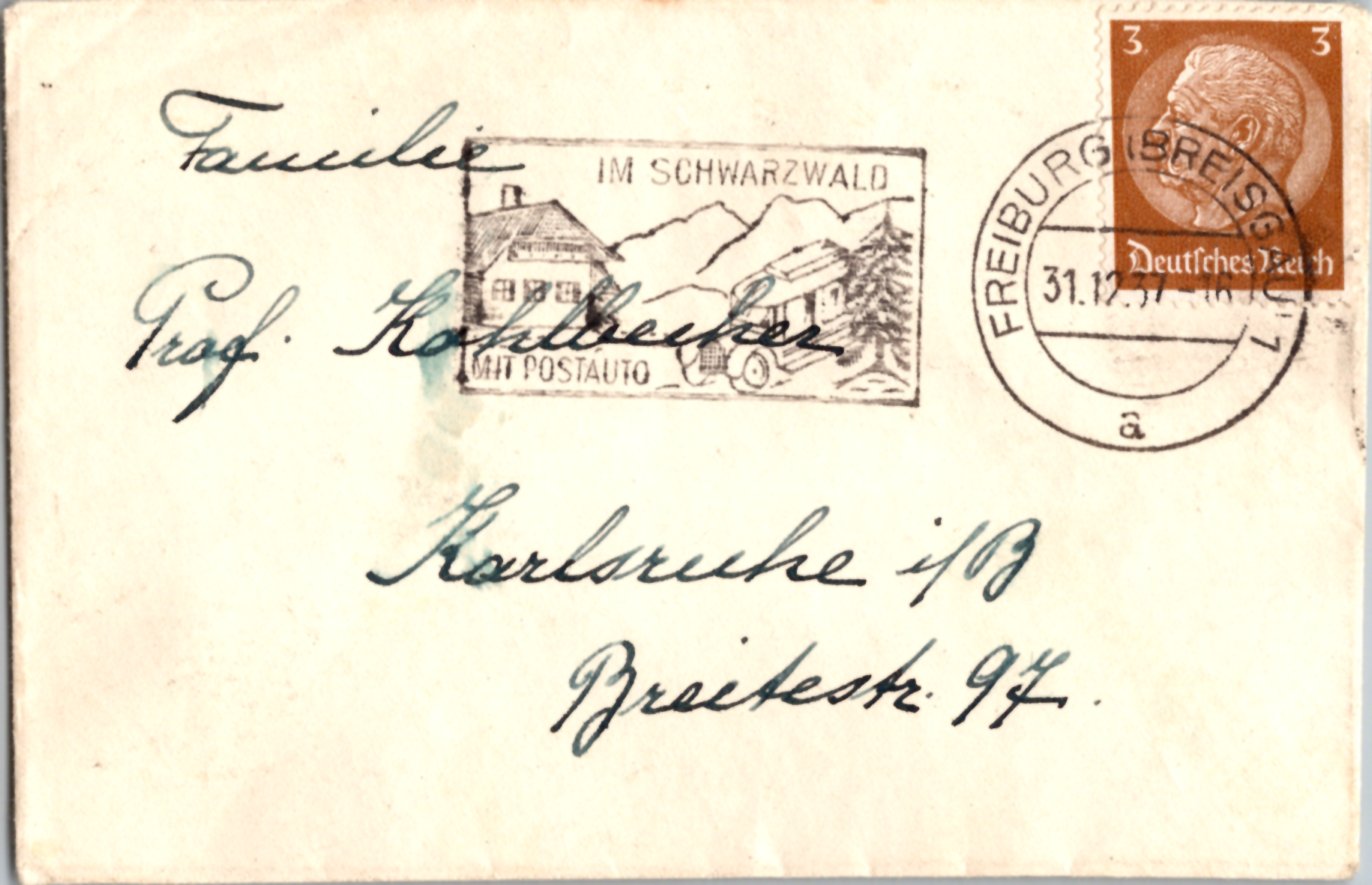 3 3
Deutsches Reich
FREIBURG (BREISGAU) 1
31.12.37-16
a
IM SCHWARZWALD
MIT POSTAUTO
Familie
Prof. Kohlbecker
Karlsruhe i/B
Breitestr. 97.